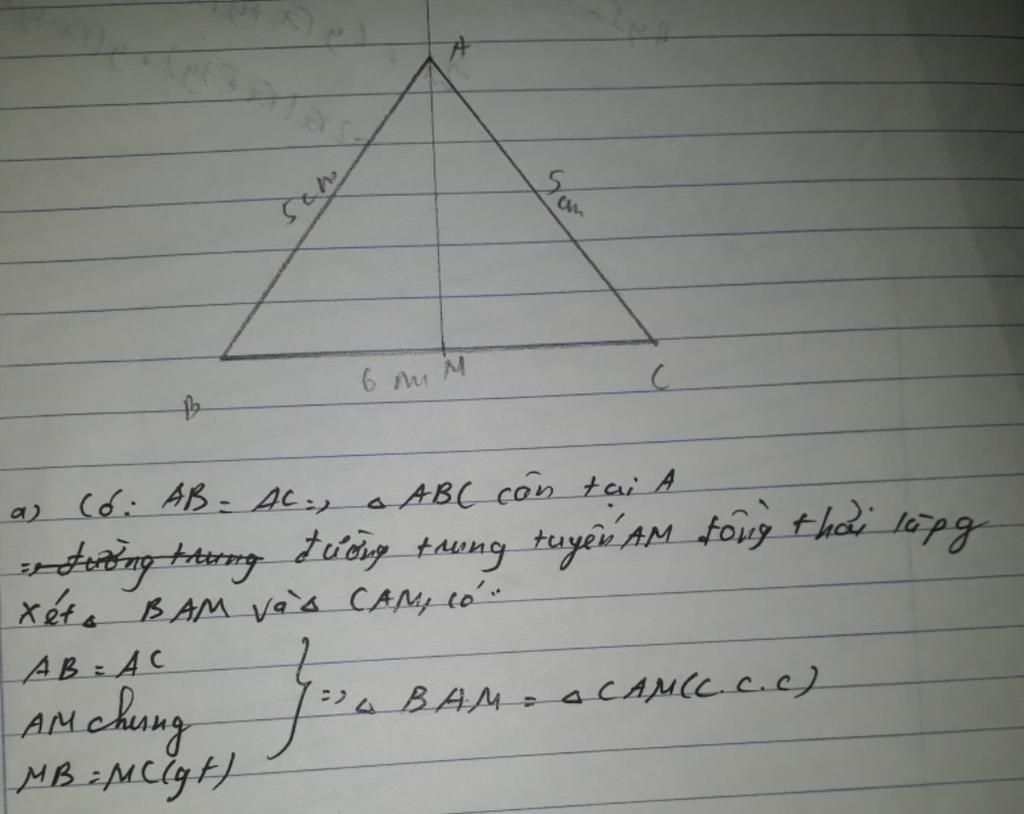 A
5 cm
5 cm
6 cm M
C
B
a) Có: AB = AC => △ ABC cân tại A
=> đường trung đường trung tuyến AM đồng thời là pg
Xét △ BAM và △ CAM, có:
AB = AC
AM chung
MB = MC (gt)
=> △ BAM = △ CAM (C.C.C)